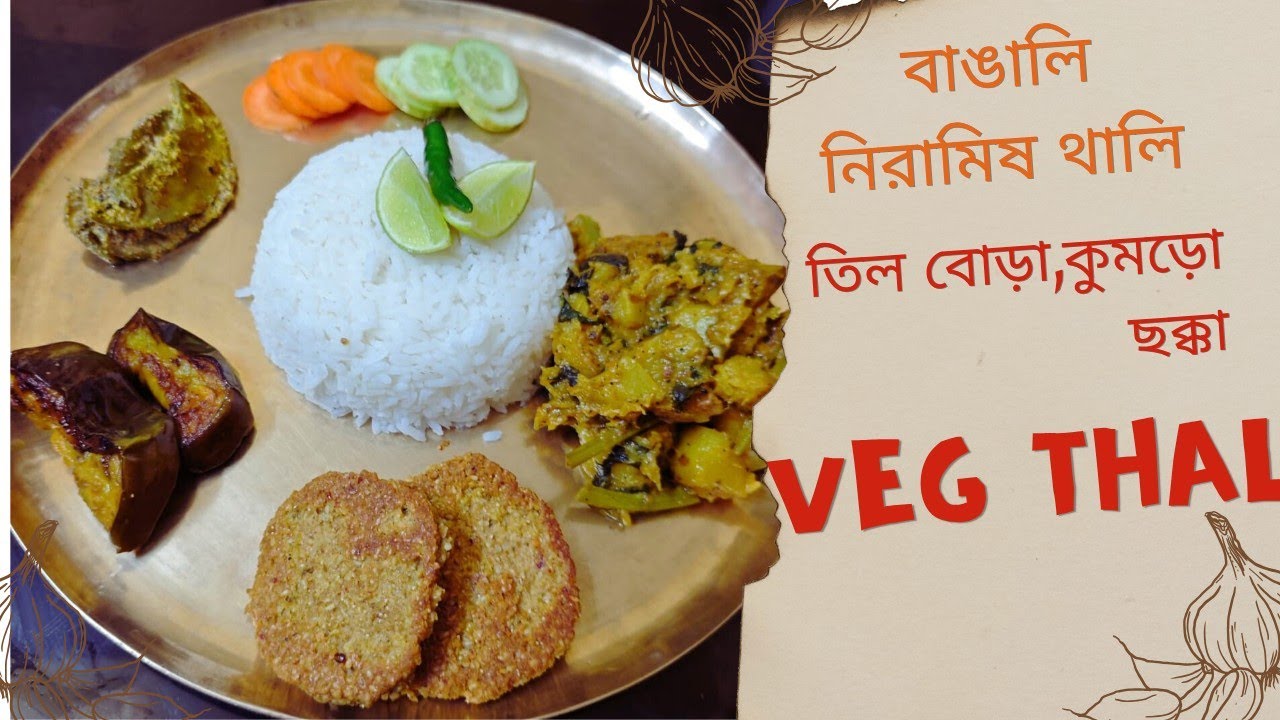 বাঙালি
নিরামিষ থালি
তিল বোড়া,কুমড়ো
ছক্কা
VEG THAL